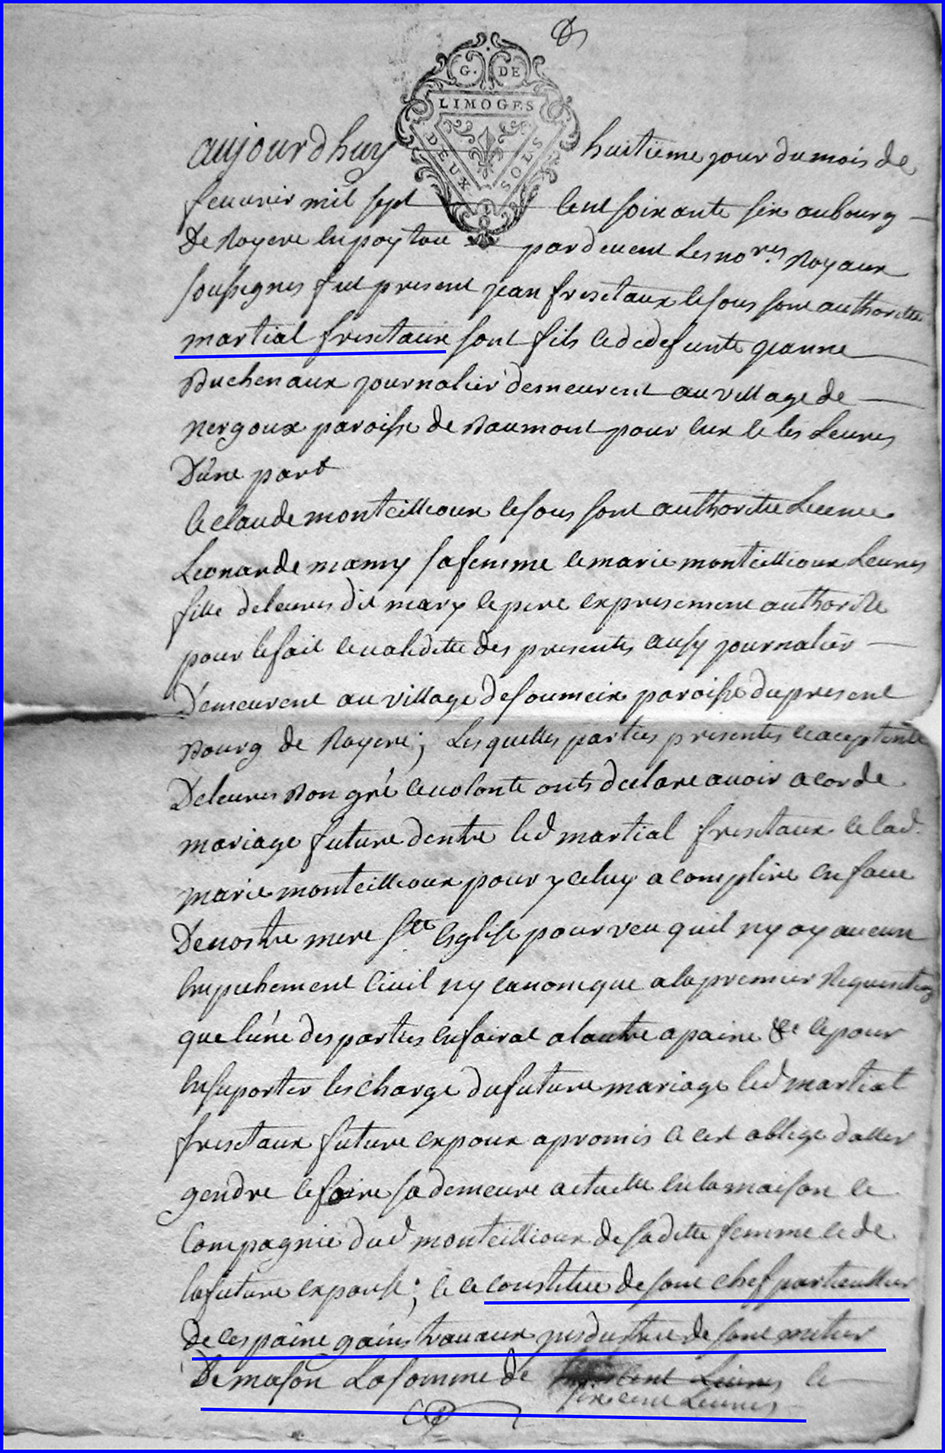 G. DE
LIMOGES
DEUX SOLS
aujourdhuy huitieme jour du mois de
feuvrier mil sept cent soixante six au bourg
De Royere en poytou pardevent les nores Royaux
soussignes fut present jean frisetaux et sous sont authoritte
martial frisetaux sont fils et de defunte jeanne
Duchenaux journalier demeurent au village de
nergoux paroisse de Baumont pour eux et les Leures
D'une part
et claude monteillioux et sous sont authoritte Licence
Leonarde mamy sa femme et marie monteillioux Leures
fille deleures dit mary et pere expresement authorise
pour le fait et validitte des presentes aussy journalier
Demeurent au village de soumeix paroisse du present
Bourg de Royere; Lesquelles parties presentes et aceptente
De leures Bon gré et volonte onts declare avoir acorde
mariage future dentre led martial frisetaux et lad.
marie monteillioux pour y celuy acomplire en face
De nostre mere ste Esglise pourveu quil ny oy aucun
Empechement Civil ny canonique a la premier Requisition
que l'une des parties en fairat a lautre a paine &c et pour
En suporter les charge du future mariage led martial
frisetaux future expoux apromis et cest oblige daller
gendre et faire sa demeure actuelle en la maison et
Compagnie dud monteillioux de saditte femme et de
la future expouse; et ce constitue de sont chef particullier
De ces paine gains travaux jndustrie de sont metier
De mason La somme de cent Livres et
six cent Livres